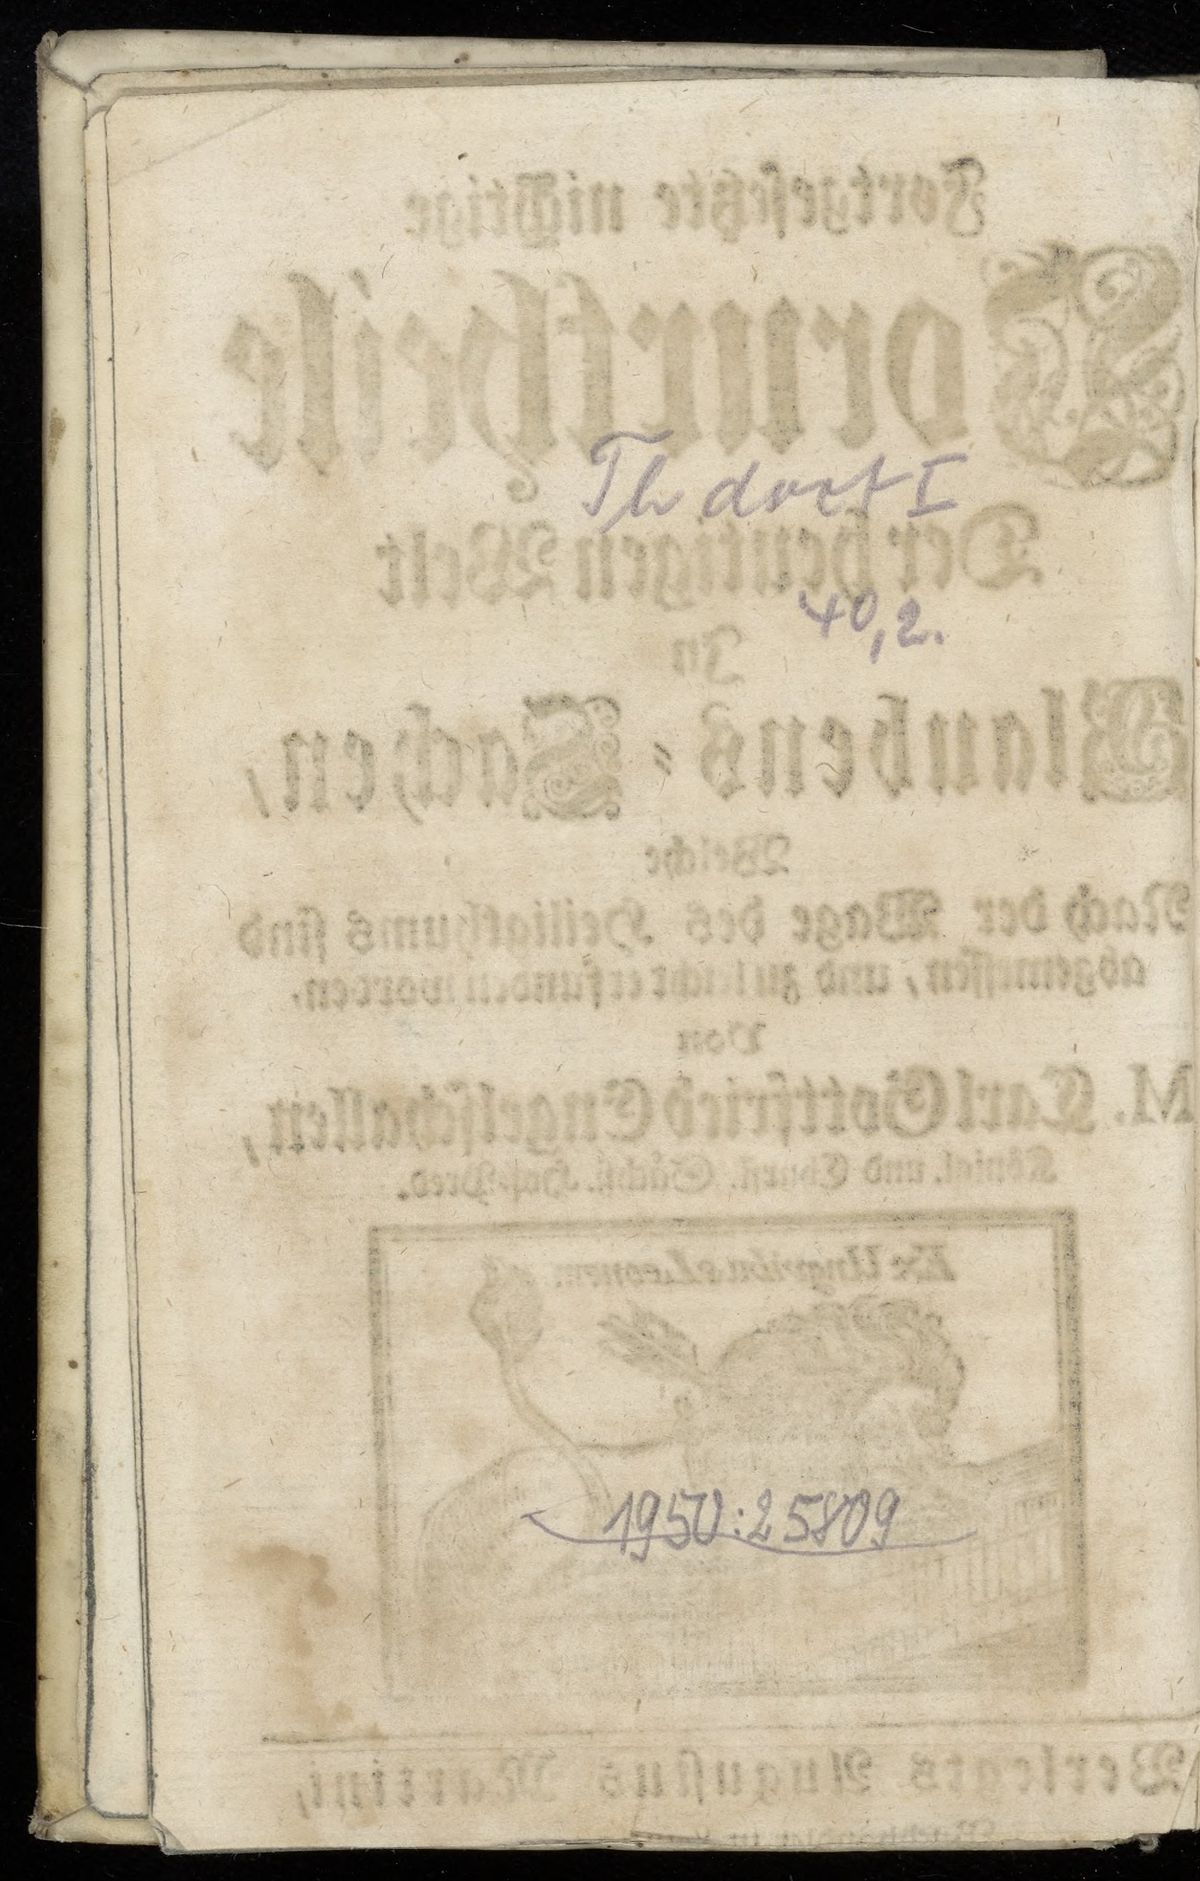 Fortgesetzte nichtige
Vorurtheile
Th dort I
Der heutigen Welt
40,2.
In
Glaubens-Sachen,
Welche
Nach der Wage des Heiligthums sind
abgemessen, und zu leicht erfunden worden.
Von
M. Carl Gottfried Engelschallen,
Königl. und Churfl. Sächß. Hof-Pred.
Ex Ungvibus Leonem
1950:25809
Verlegts Augustus Martini,